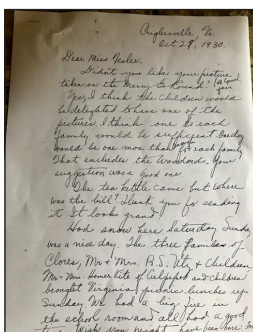 Oct 28, 1930.
Dear Miss Nesler:
Didn't you like your picture
taken on the Merry-Go-Round?
Yes, I think the children would
be delighted to have one of the
pictures. I think one to each
family would be sufficient. One doz
would be one more than for each family
That includes the Woodwards. Your
suggestion was a good one.
The tea kettle came but where
was the bill? Thank you for sending
it It looks grand.
Had snow here Saturday Sunday
was a nice day. The three families of
Clores, Mr & Mrs. R.S. Utz & Children
Mr & Mrs. Homer Utz of Culpeper and Children
brought picnic lunches up
Sunday We had a big fire in
the school room and all had a good
Wish you might have been here